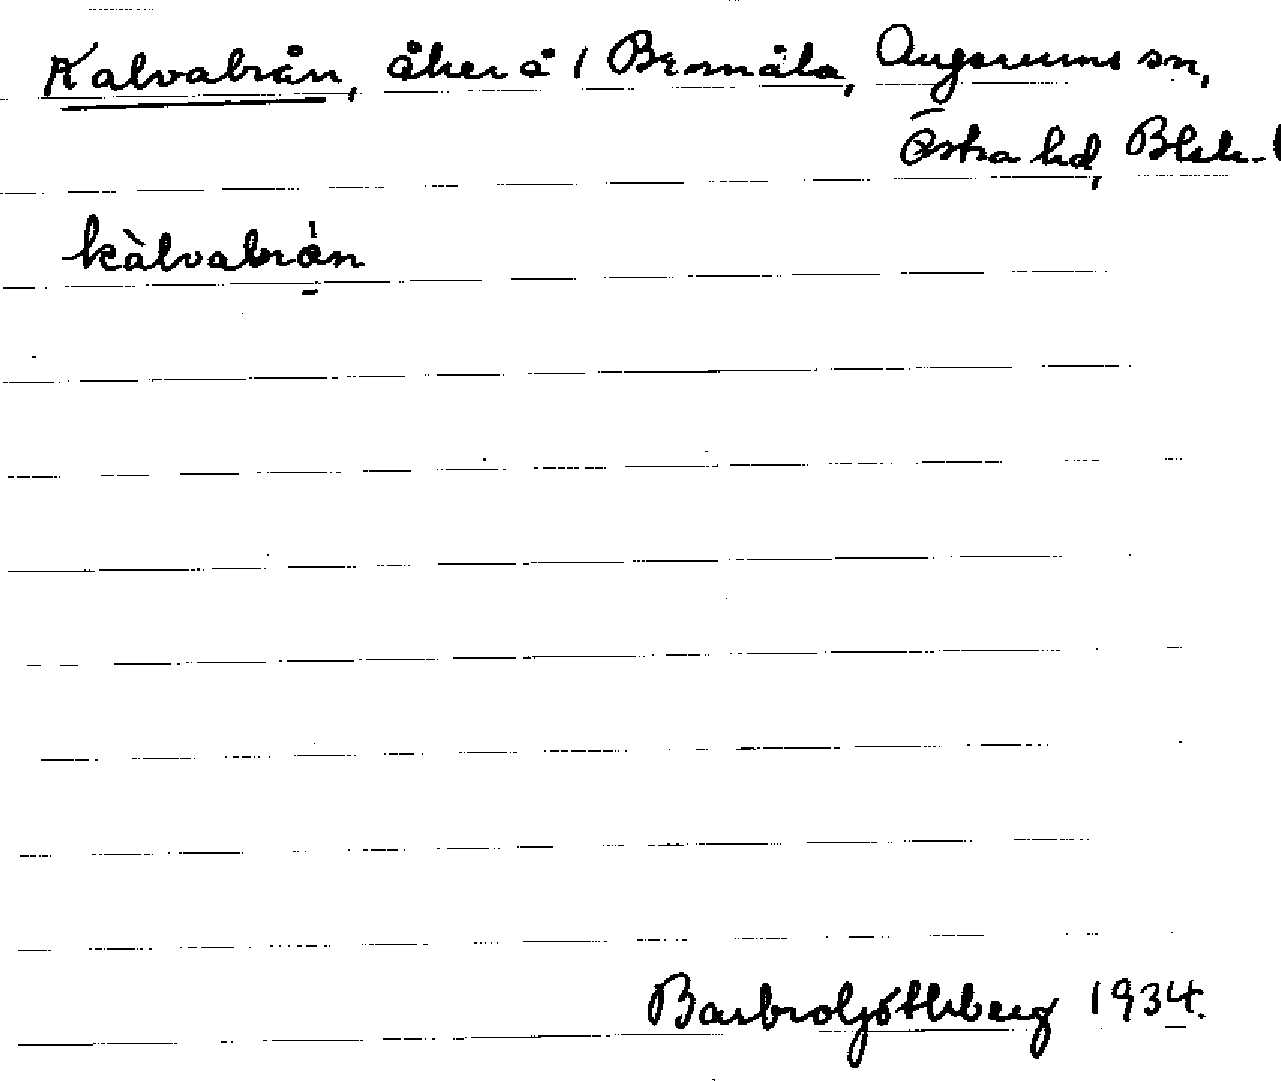 Kalvabrån, åker å 1 Bromåla, Augerums sn,
Östra hd, Blek. l
kàlvabrån
Barbro Götherberg 1934.